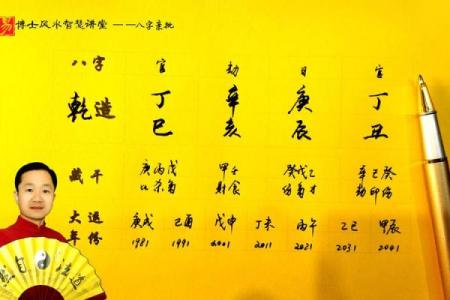 易 博士风水智慧讲堂 ——八字亲批
八字 官 劫 日 官
乾造 丁 辛 庚 丁
巳 亥 辰 丑
藏干 庚丙戊 甲壬 癸戊乙 辛己癸
比杀枭 财食 伤枭才 劫印伤
大运 庚戌 己酉 戊申 丁未 丙午 乙巳 甲辰
年份 1981 1991 2001 2011 2021 2031 2041
道法自然